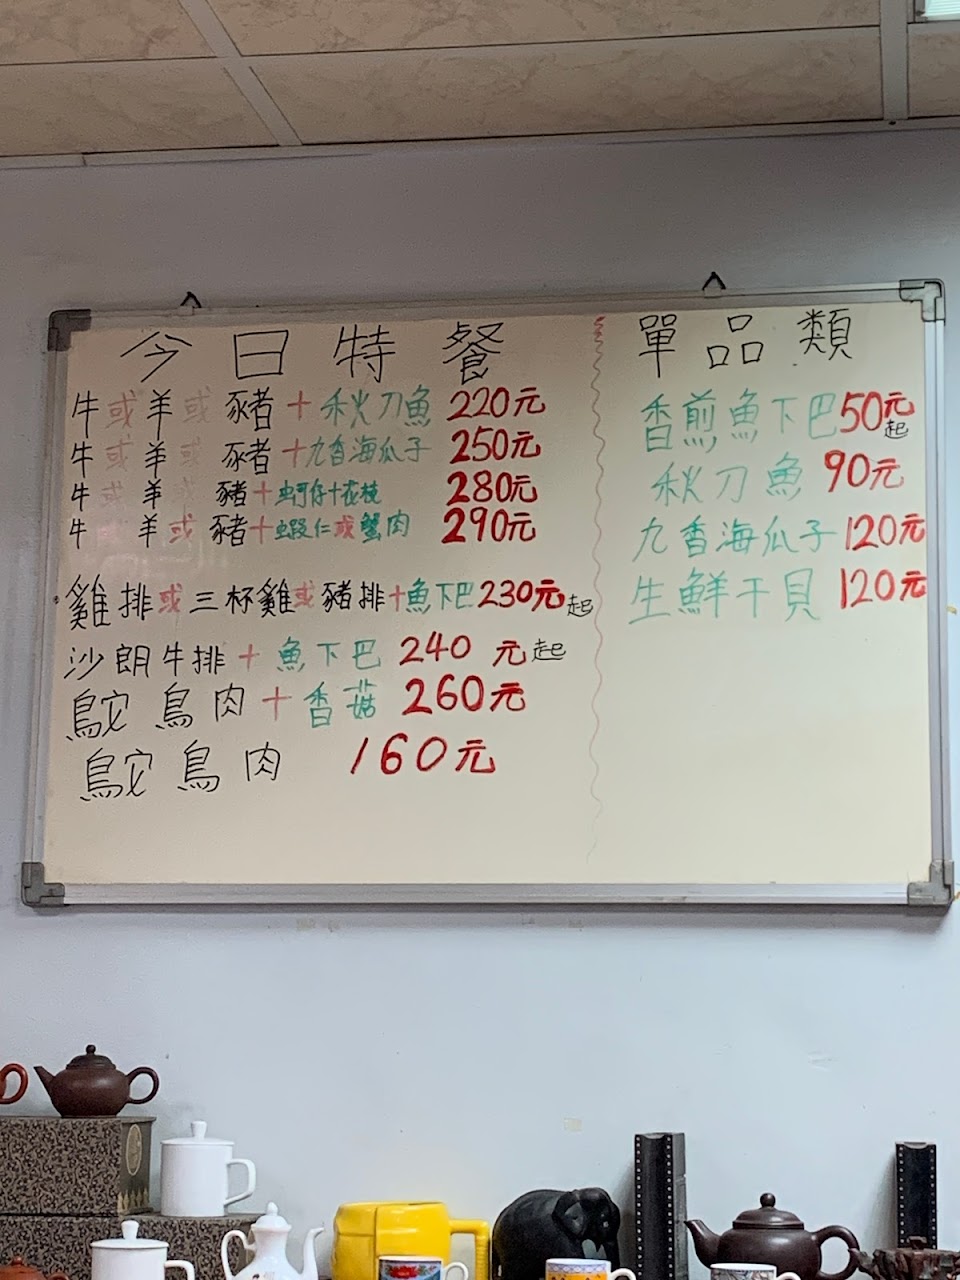 今日特餐
牛或羊或豬+秋刀魚 220元
牛或羊或豬+九香海瓜子 250元
牛或羊或豬+蚵仔+花枝 280元
牛 羊或豬+蝦仁或蟹肉 290元
雞排或三杯雞或豬排+魚下巴 230元起
沙朗牛排+魚下巴 240元起
鴕鳥肉+香菇 260元
鴕鳥肉 160元
單品類
香煎魚下巴 50元起
秋刀魚 90元
九香海瓜子 120元
生鮮干貝 120元